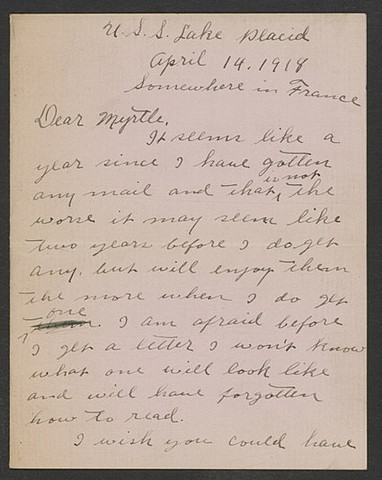 U. S. S. Lake Placid
April 14, 1918
Somewhere in France
Dear Myrtle,
It seems like a
year since I have gotten
is not
any mail and that, the
worse it may seem like
two years before I do get
any, but will enjoy them
the more when I do get
one
. I am afraid before
I get a letter I won't know
what one will look like
and will have forgotten
how to read.
I wish you could have